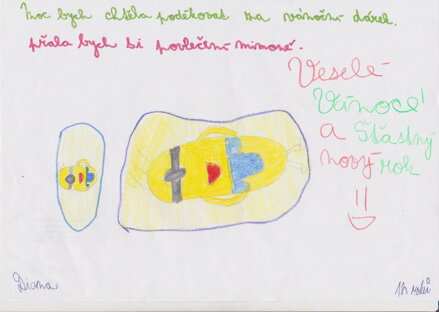 Moc bych chtěla poděkovat za vánoční dárek.
přála bych si povlečení mimoně.
Veselé
Vánoce!
a Šťastný
nový rok
Diana